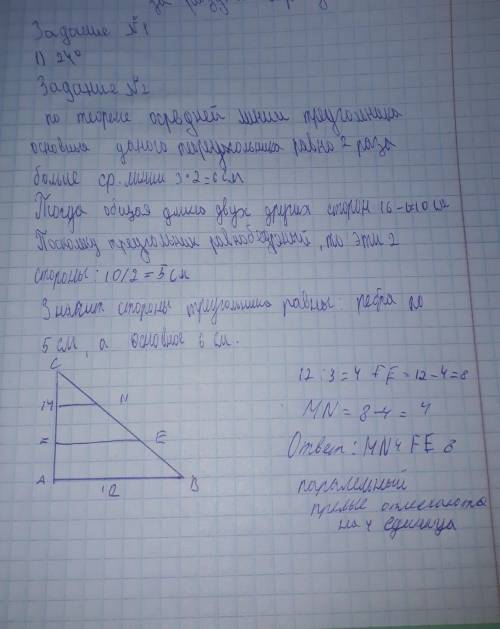 за
Задание №1
1) 24°
Задание №2
по теореме о средней линии треугольника
основна даного равно 2 раза
больше ср. линии 3·2=6см
Тогда общая длина двух других сторон 16-6=10см
Поскольку треугольник равнобедренный, то эти 2
стороны: 10/2=5см
Значит стороны треугольника равны: ребра по
5см, а основное 6 см.
C
12:3=4 FE=12-4=8
M N
MN=8-4=4
F E
Ответ: MN4 FE 8
A 12 B
прямые отличаются
на 4 единица